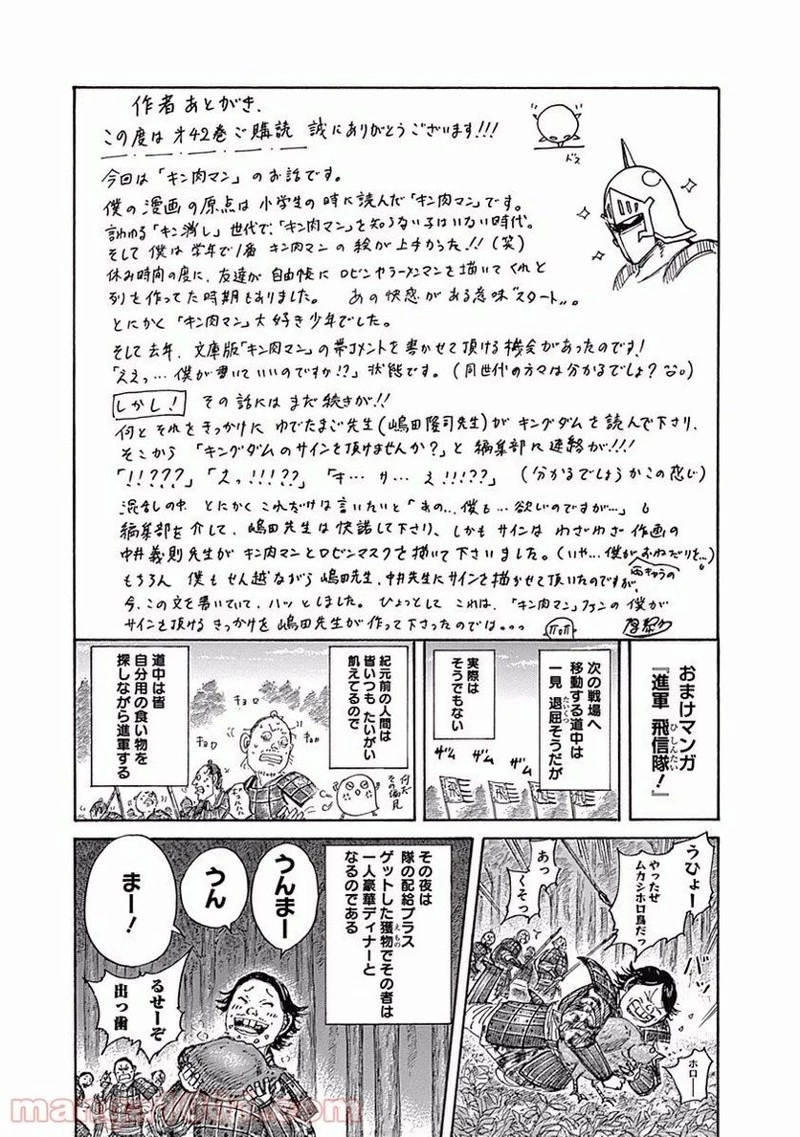 作者あとがき.
この度は 才42巻ご購読 誠にありがとうございます!!!
ドス
今回は「キン肉マン」のお話です。
僕の漫画の原点は小学生の時に読んだ「キン肉マン」です。
いわゆる「キン消し」世代で、「キン肉マン」を知らない子はいない時代。
そして僕は学年で1番 キン肉マンの絵が上手かった!!(笑)
休み時間の度に、友達が自由帳にロビンやラーメンマンを描いてくれと
列を作ってた時期もありました。 あの快感がある意味“スタート”。
とにかく「キン肉マン」大好き少年でした。
そして去年、文庫版「キン肉マン」の帯コメントを書かせて頂ける機会があったのです!
「ええっ…僕が書いていいのですか!?」状態です。(同世代の方々は分かるでしょ?
しかし! その話にはまだ続きが!!
何とそれをきっかけに ゆでたまご先生(嶋田隆司先生)が キングダムを読んで下さり、
そこから「キングダムのサインを頂けませんか?」と編集部に連絡が!!!
「!!???」「えっ!!!??」「オ…サ…え!!!??」(分かるでしょうかこの感じ)
混乱の中 とにかくこれだけは言いたいと「あの…僕も…欲しいのですが…」
編集部を介して、嶋田先生は快諾して下さり、しかもサインは わざわざ 作画の
中井義則先生が キン肉マンとロビンマスクを描いて下さいました。(いや…僕がおねだりを…)
もちろん 僕もせん越ながら嶋田先生、中井先生にサインを描かせて頂いたのですが、
今、この文を書いていて、ハッとしました。ひょっとして これは、「キン肉マン」ファンの僕が
サインを頂けるきっかけを嶋田先生が作って下さったのでは。。。
おまけマンガ
『進軍 飛信隊!』
ひしんたい
次の戦場へ
移動する道中は
一見 退屈そうだが
たいくつ
実際は
そうでもない
ザム
ザム
ザム
紀元前の人間は
皆いつも たいがい
飢えてるので
道中は皆
自分用の食い物を
探しながら進軍する
キョロ
キョロ
キョロ
何だ
その偏見
うひょー
やったぜ
ムカシホロ鳥だっ
あっ
くそっ
ホロー
その夜は
隊の配給プラス
ゲットした獲物でその者は
えもの
一人豪華ディナーと
なるのである
うんまー
うん
まー!
るせーぞ
出っ歯